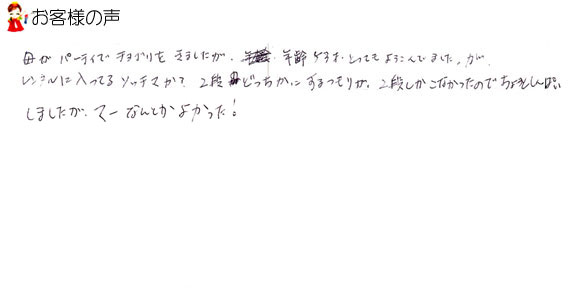 お客様の声
母が パーティで チョゴリを きましたが、年齢 とってもよろこんでました。
レンタルに入ってる ソッチマが？ 2段 どっちかに するつもりが、2段しか こなかったので ちょっと心配
しましたが、まー なんとか よかった！